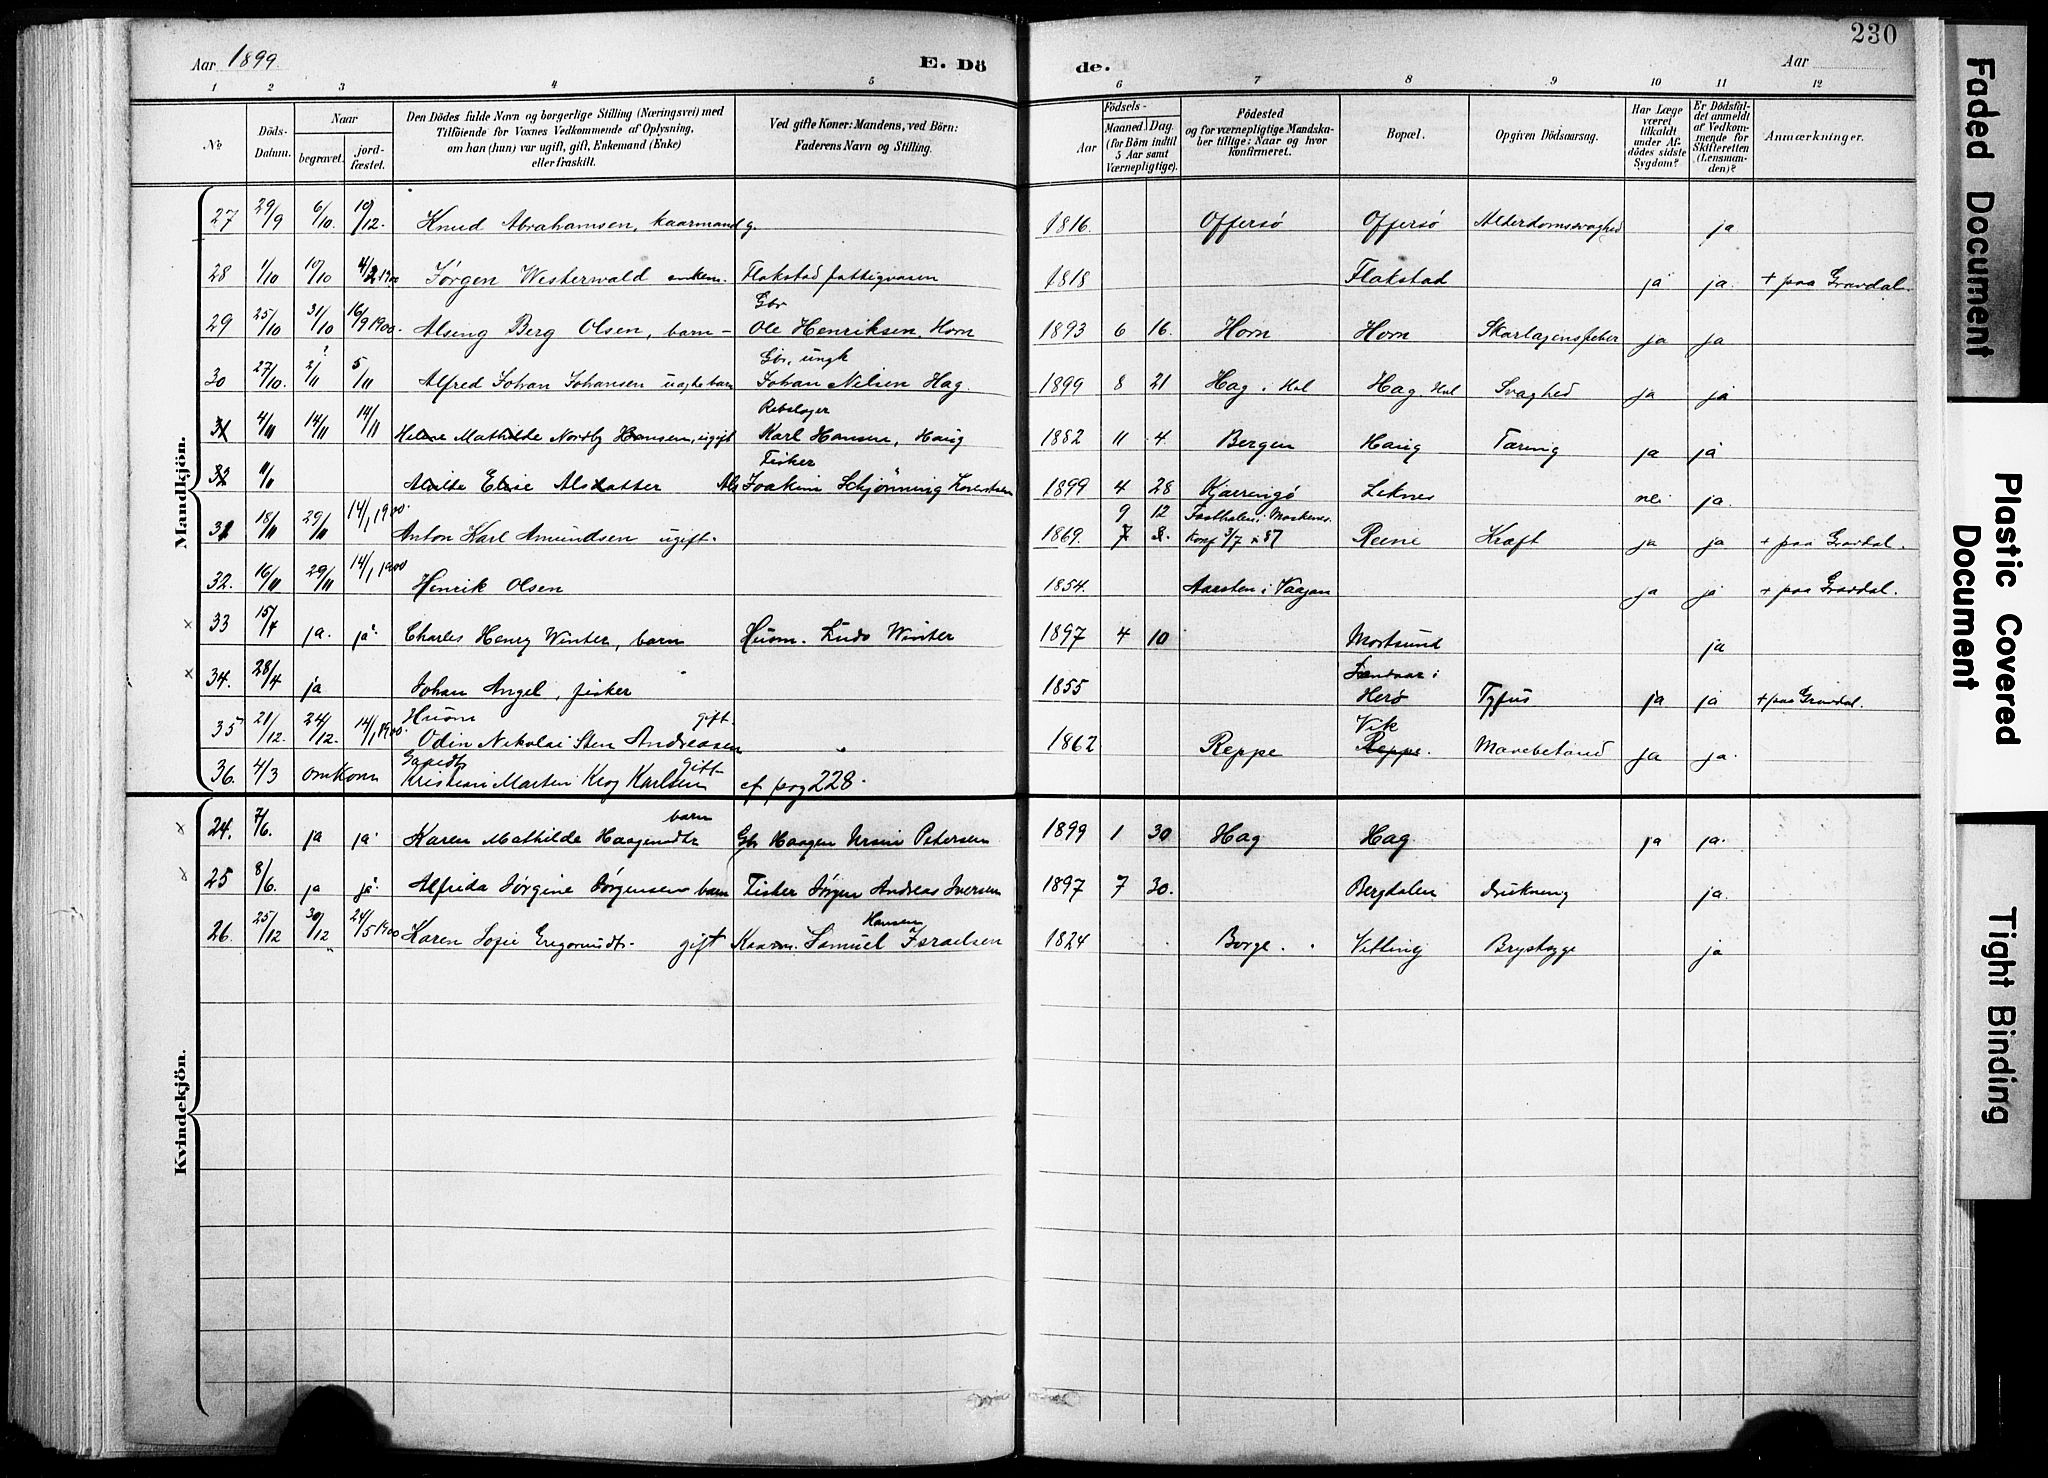 Aar 1899. E. Dö
de. Aar 230
1 2 3 4 5 6 7 8 9 10 11 12
№
Döds-Datum.
Naar
begravet.
jordfæstet.
Den Dödes fulde Navn og borgerlige Stilling (Næringsvei) med Tilföiende for Voxnes Vedkommende af Oplysning, om han (hun) var ugift, gift, Enkemand (Enke) eller fraskilt.
Ved gifte Koner: Mandens, ved Börn: Faderens Navn og Stilling.
Födsels-
Aar
Maaned Dag.
(for Börn indtil 5 Aar samt Værnepligtige).
Födested og for værnepligtige Mandskaber tillige: Naar og hvor konfirmeret.
Bopæl.
Opgiven Dödsaarsag.
Har Læge været tilkaldt under Afdödes sidste Sygdom?
Er Dödsfaldet anmeldt af Vedkommende for Skifteretten (Lensmanden)?
Anmærkninger.
Mandkjön.
27 29/9 6/10 10/12. Knud Abrahamsen, kaarmand g. 1816. Offersö Offersö Alderdomssvaghed ja
28 1/10 10/10 4/2 1900 Jørgen Westerwald enkem. Flakstad fattigvæsen 1818 Flakstad ja ja + paa Gravdal.
29 25/10 31/10 16/9 1900. Alseng Berg Olsen, barn - Gbr Ole Henriksen, Horn 1893 6 16. Horn Horn Skarlagensfeber ja ja
30 27/10. 2/11 5/11 Alfred Johan Johansen uægte barn Gbr, ungk Johan Nilsen Hag. 1899 8 21 Hag i Hol Hag. Hol Svaghed ja ja
31 4/11 14/11 14/11 Helene Mathilde Nordby Hansen, ugift Rebslager Karl Hansen, Haug 1882 11 4. Bergen Haug Tæring ja ja
32 Alvilde Elise Alsdatter Fisker Als Joakim Schjönning 1899 4 28 Kjærringö Leknes nei ja.
31 18/11 29/11 14/1 1900. Anton Karl Amundsen ugift. 1869. 9 12 7 8. i Moskenes. Konf 3/7 87 Reine Kræft ja ja + paa Gravdal.
32. 16/11 29/11 14/1 1900 Henrik Olsen 1854. Aarsten i Vaagan ja ja + paa Gravdal.
x 33 15/4 ja. ja. Charles Henry Winter, barn Husm. Ludv Winter 1897 4 10 Mortsund ja
x 34. 28/4 ja Johan Angel, fisker 1855 i Herö Tyfus ja ja + paa Gravdal.
35 21/12. 24/12. 14/1 1900. Husm Odin Nikolai Sten Andreasen gift. 1862 Reppe Vik Reppe. Mavebetænd ja ja.
36. 4/3 omkom Kristian Martin Krog Karlsen gift cf pag 228.
Kvindekjön.
x 24. 7/6. ja ja. Karen Mathilde Haagensdtr barn Gbr Haagen Ursin Petersen 1899 1 30 Hag Hag ja ja.
x 25 8/6. ja ja. Alfrida Jørgine Jørgensen barn Fisker Jørgen Andreas Iversen 1897 7 30. Bergdalen drukning ja.
26. 25/12 30/12 24/5 1900 Karen Sofie Gregorusdtr. gift Kaarm. Samuel Hansen Israelsen 1824 Borge. Vetting Brystsyge ja
Faded Document
Plastic Covered Document
Tight Binding